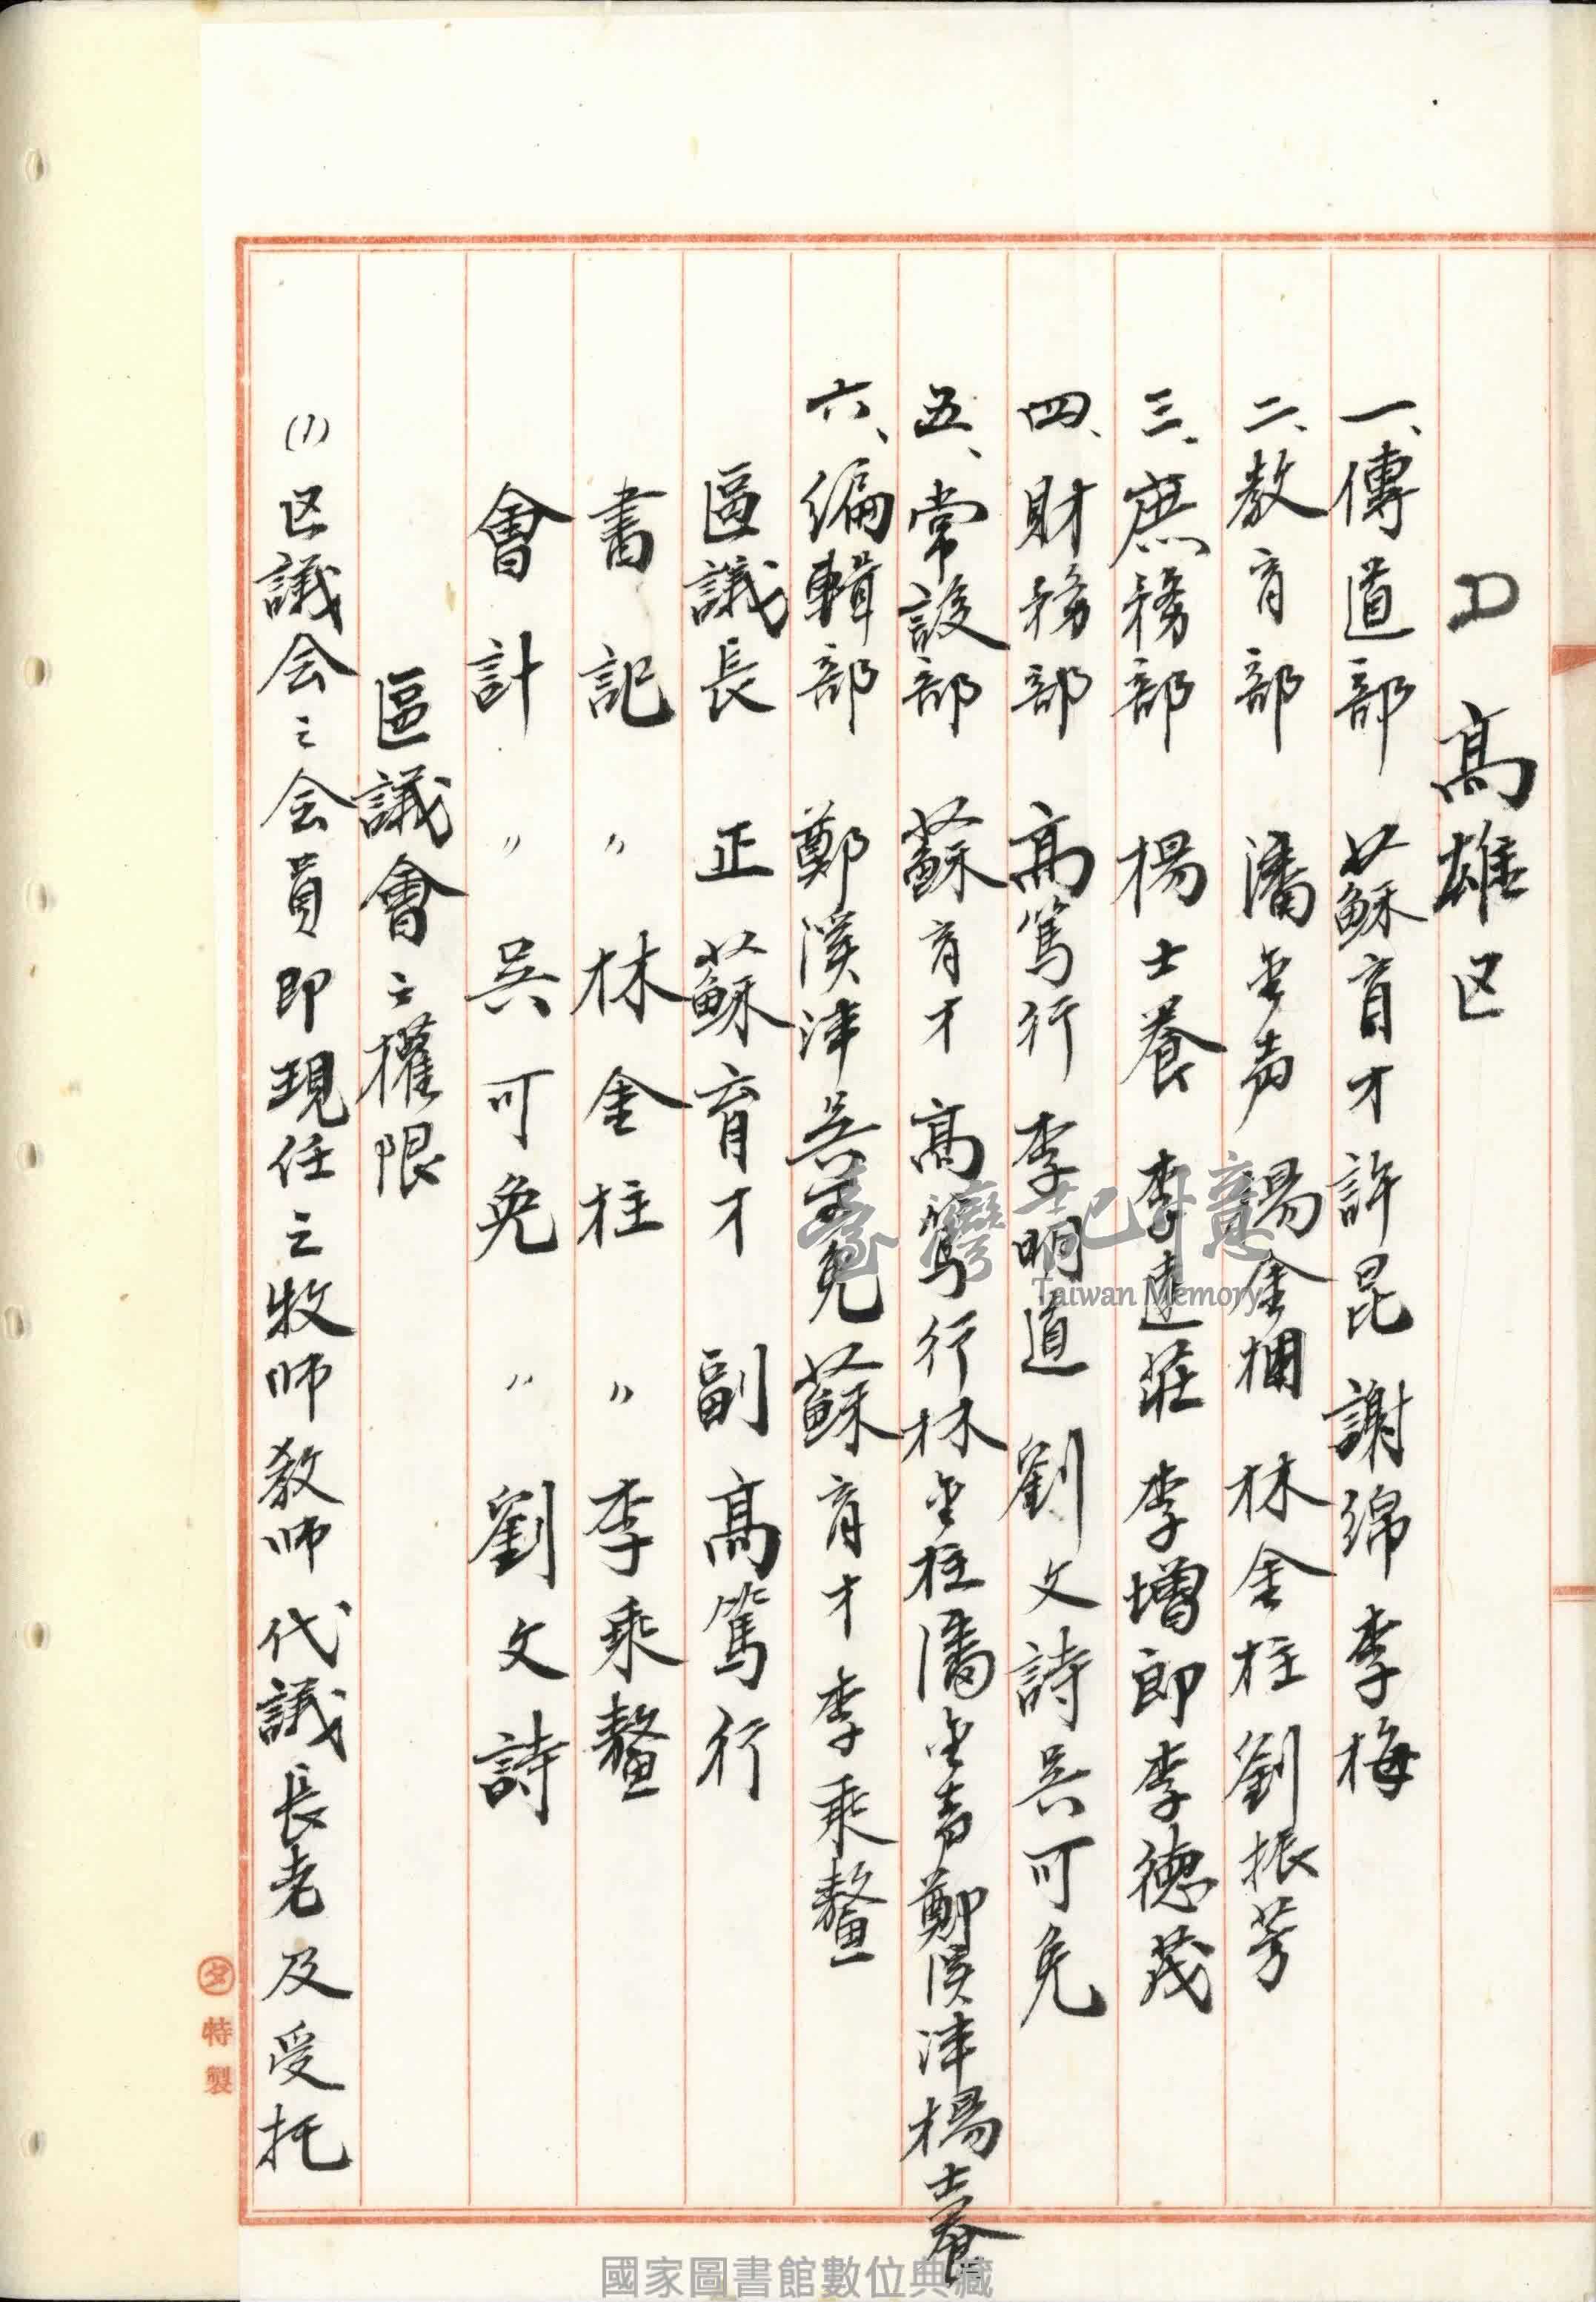 口 高雄区
一、傳道部 蘇育才 許昆 謝綿 李梅
二、教育部 潘金声 楊金棚 林金柱 劉振芳
三、庶務部 楊士養 李達莊 李增郎 李德茂
四、財務部 高篤行 李明道 劉文詩 吳可免
五、常設部 蘇育才 高篤行 林金柱 潘金声 鄭溪津 楊士養
六、編輯部 鄭溪津 吳可免 蘇育才 李乘鰲
區議長 正 蘇育才 副 高篤行
書記 〃 林金柱 〃 李乘鰲
會計 〃 吳可免 〃 劉文詩
區議會之權限
(1) 区議会之会員即現任之牧师教师代議長老及受托
夕 特製
臺灣記憶
Taiwan Memory
國家圖書館數位典藏